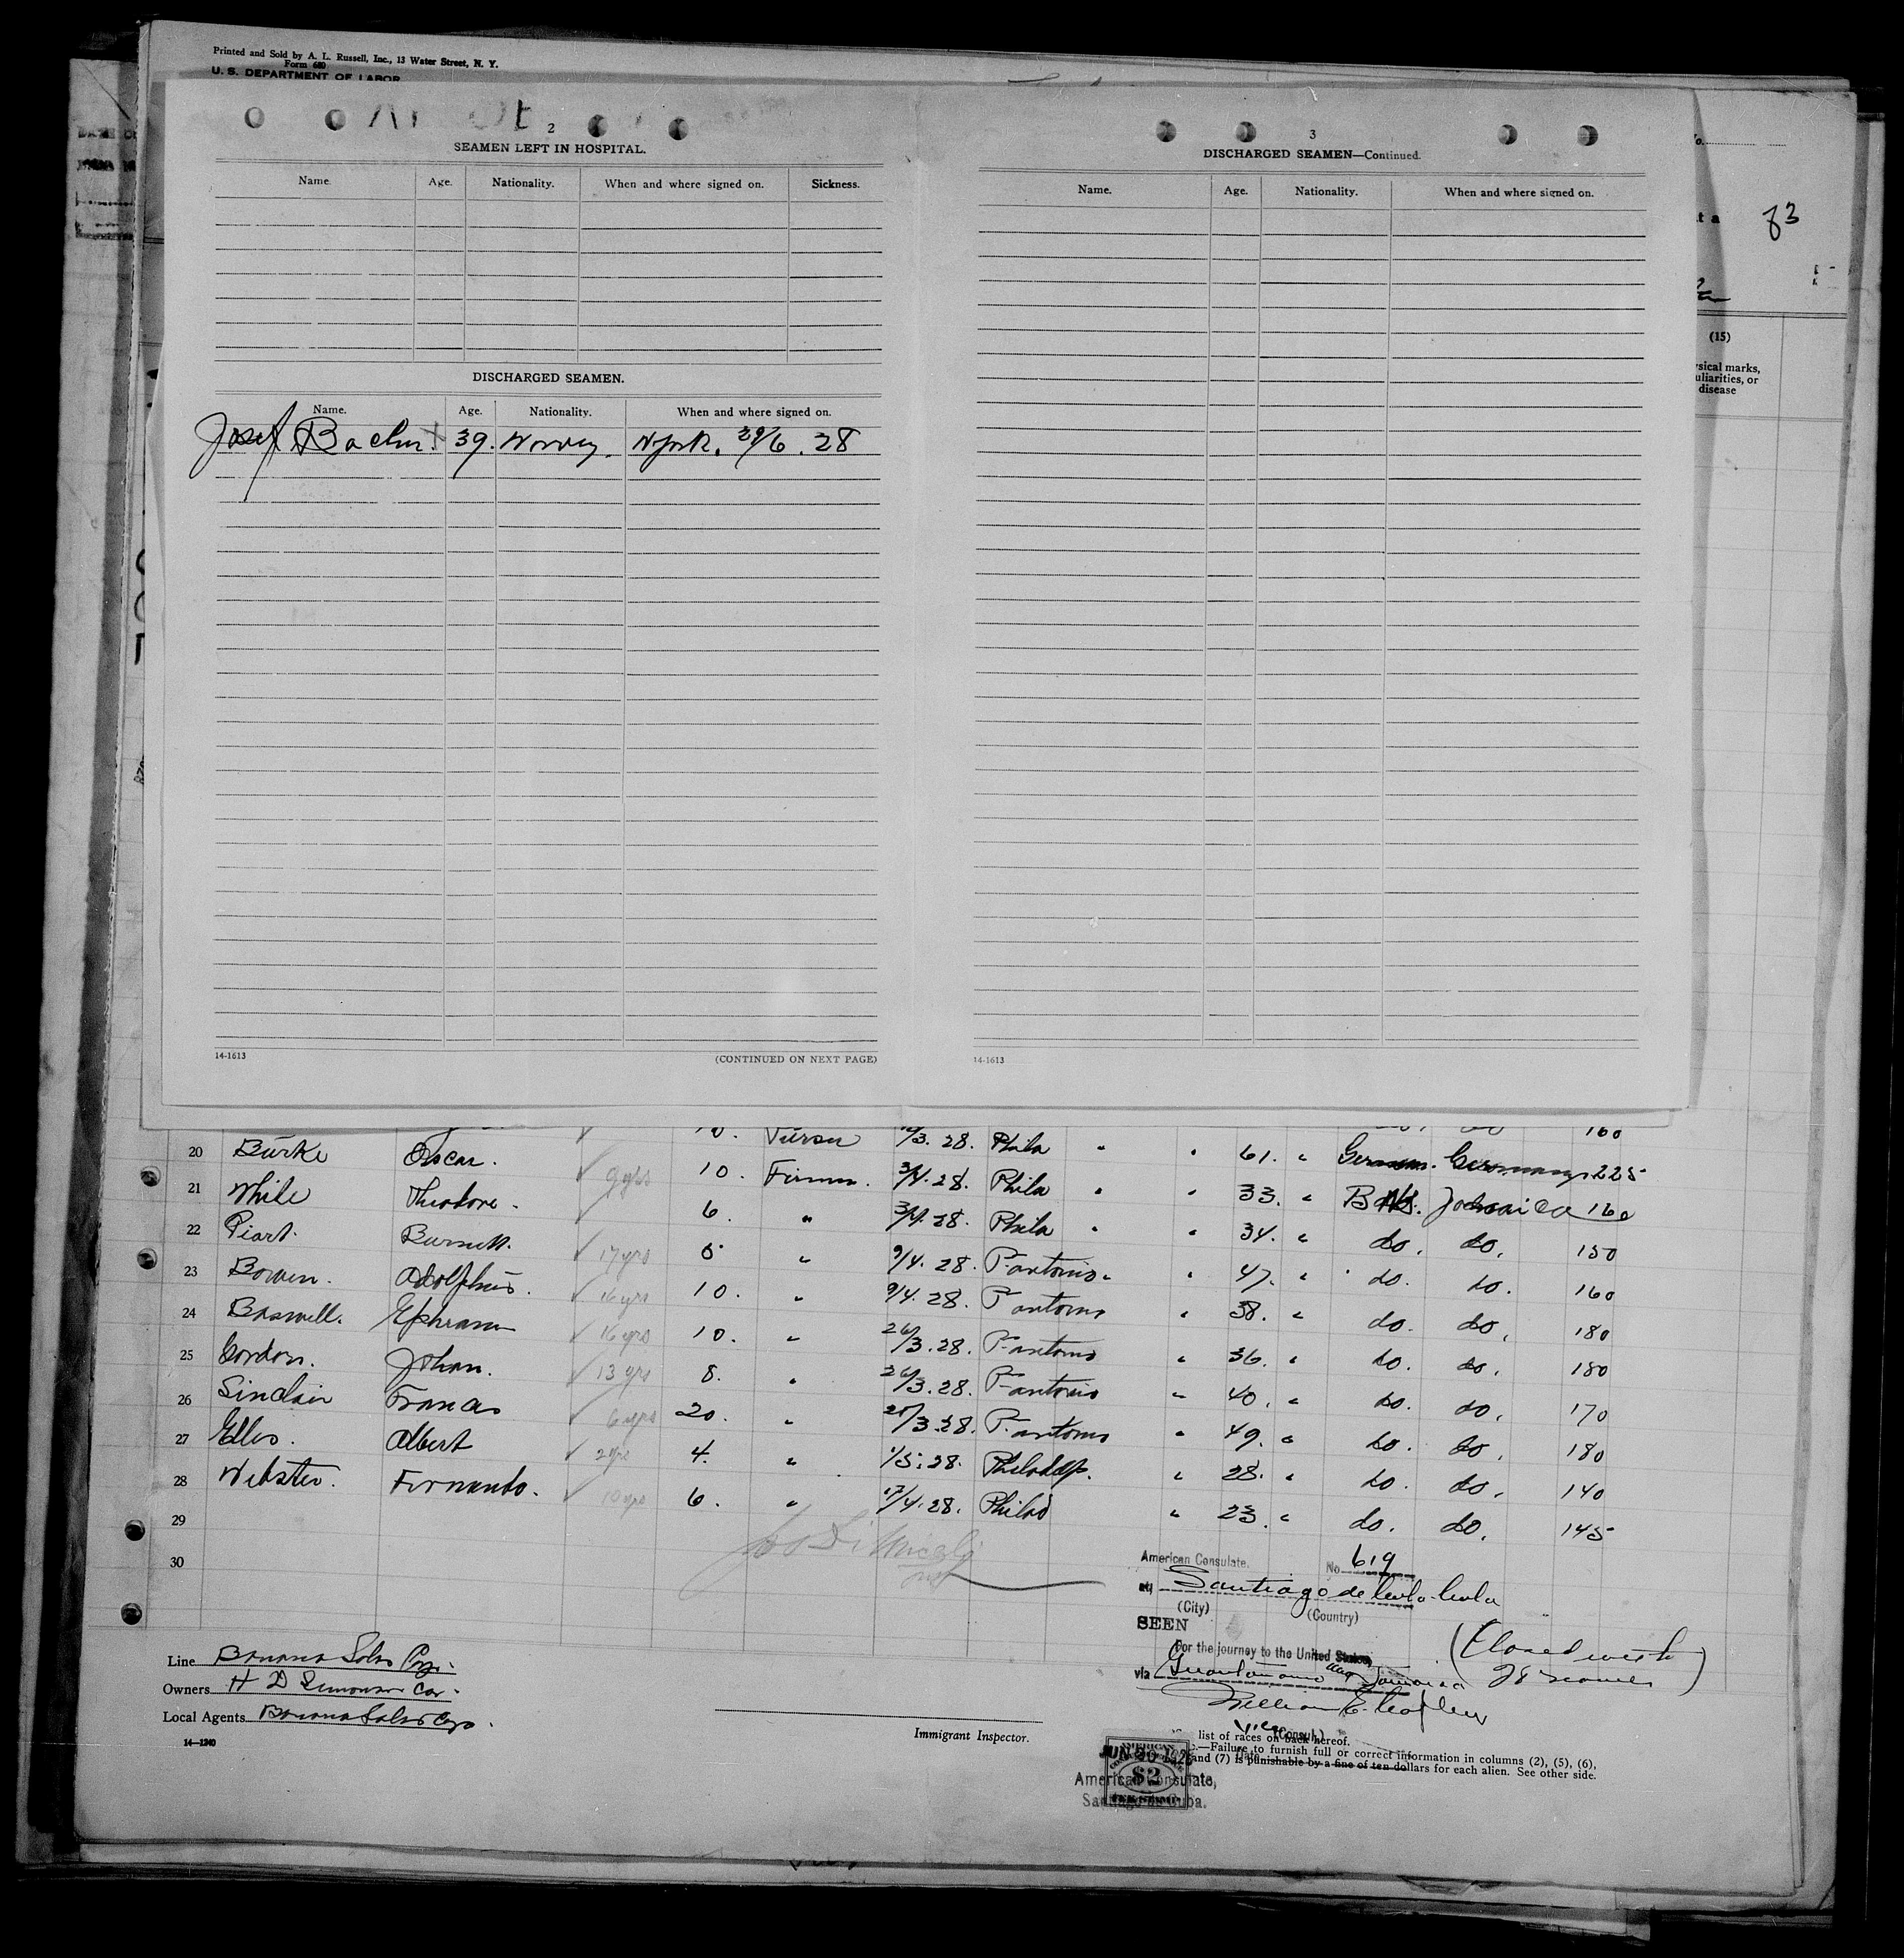 Printed and Sold by A. L. Russell, Inc., 13 Water Street, N. Y.
Form 680
U. S. DEPARTMENT OF LABOR
2
SEAMEN LEFT IN HOSPITAL.
Name. Age. Nationality. When and where signed on. Sickness.
DISCHARGED SEAMEN.
Name. Age. Nationality. When and where signed on.
Josef 39. Norway. N York. 29/6. 28
14-1613
(CONTINUED ON NEXT PAGE)
3
DISCHARGED SEAMEN—Continued.
Name. Age. Nationality. When and where signed on.
14-1613
83
(15)
disease
10. 3. 28. Phila 160
20 Burke Oscar. 9 yrs 10. Firmen. 3/4. 28. Phila " " 61. " German. Germany 225
21 While Theodore. 6. " 3/4. 28. Phila " " 33. " Jamaica 160
22 Piart. Burnett. 17 yrs 5 " 9/4. 28. P. antonio. " 34. " do. do. 150
23 Bowen. Adolphus. 16 yrs 10. " 9/4. 28. P antonio " 47. " do. do. 160
24 Baswell. Ephraim 16 yrs 10. " 26/3. 28. P. antonio " 38. " do. do. 180
25 Gordon. Johan. 13 yrs 8. " 26/3. 28. P. antonio " 36. " do. do. 180
26 Sinclair Francis 6 yrs 20. " 3.28. P. antonio " 40. " do. do. 170
27 Elles. Albert 2 yrs 4. " 1/5. 28. Philadelp. " 49. " do. do. 180
28 Webster. Fernando. 10 yrs 6. " 17/4. 28. Philad " 28. " do. do. 140
29 " 23. " do. do. 145
30
American Consulate. No. 619
at Santiago de Cuba - Cuba
(City) (Country)
SEEN
For the journey to the United States,
via Guantanamo and Jamaica
(Closed with
28 names)
(Consul)
Line Banana Sales Corp.
Owners H D Simonsen
Local Agents Banana Sales Corp.
14—1240
Immigrant Inspector.
list of races on back hereof.
—Failure to furnish full or correct information in columns (2), (5), (6),
and (7) is punishable by a fine of ten dollars for each alien. See other side.
$2
American Consulate,
Santiago de Cuba.